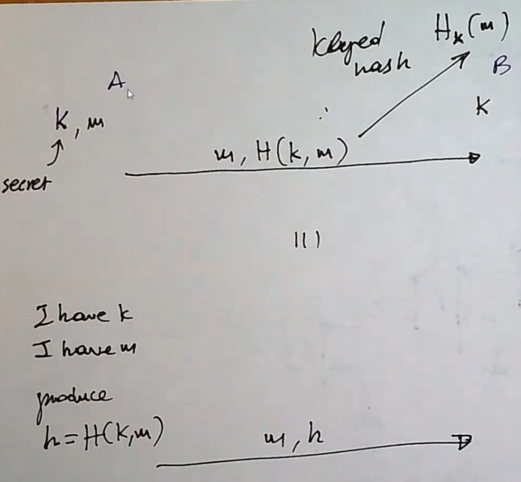 Keyed hash
H_k(m)
A
B
k, m
k
secret
m, H(k, m)
|||
I have k
I have m
produce
h = H(k, m)
m, h